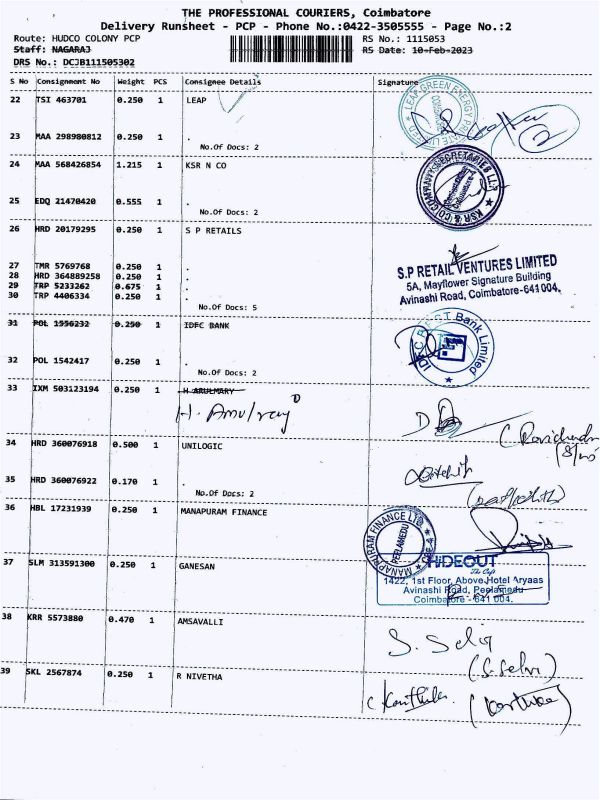 THE PROFESSIONAL COURIERS, Coimbatore
Delivery Runsheet - PCP - Phone No.:0422-3505555 - Page No.:2
Route: HUDCO COLONY PCP RS No.: 1115053
Staff: NAGARAJ RS Date: 10-Feb-2023
DRS No.: DCJB111505302
S No Consignment No Weight PCS Consignee Details Signature
22 TSI 463701 0.250 1 LEAP
LEAP GREEN ENERGY
23 MAA 298980812 0.250 1 .
No.Of Docs: 2
24 MAA 568426854 1.215 1 KSR N CO
KSR & CO COMPANY SECRETARIES LLP
25 EDQ 21470420 0.555 1 .
No.Of Docs: 2
26 HRD 20179295 0.250 1 S P RETAILS
27 TMR 5769768 0.250 1 .
28 HRD 364889258 0.250 1 .
29 TRP 5233262 0.675 1 .
30 TRP 4406334 0.250 1 .
No.Of Docs: 5
S.P RETAIL VENTURES LIMITED
5A, Mayflower Signature Building
Avinashi Road, Coimbatore-641004.
31 POL 1556232 0.250 1 IDFC BANK
IDFC FIRST Bank Limited
32 POL 1542417 0.250 1 .
No.Of Docs: 2
33 IXM 503123194 0.250 1 H ARULMARY
H. Amulraj
34 HRD 360076918 0.500 1 UNILOGIC
35 HRD 360076922 0.170 1 .
No.Of Docs: 2
36 HBL 17231939 0.250 1 MANAPURAM FINANCE
MANAPPURAM FINANCE LTD
PEELAMEDU
37 SLM 313591300 0.250 1 GANESAN
HiDEOUT
The Cafe
1422, 1st Floor, Above Hotel Aryaas
Avinashi Road, Peelamedu
Coimbatore - 641 004.
38 KRR 5573880 0.470 1 AMSAVALLI
S. Selvi
(S. Selvi)
39 SKL 2567874 0.250 1 R NIVETHA
(Karthika)